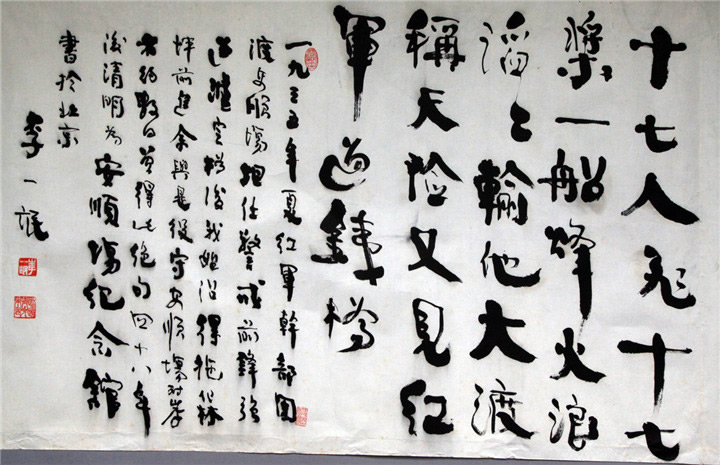 十七人飛十七
槳一船烽火浪
滔〻輸他大渡
稱天险又見紅
軍過鐵橋
一九三五年夏紅軍幹部團
渡安順場担任警戒前鋒強
定橋後我化林
坪前進余與是役守安順場对岸
者約数日曾得此绝句四十八年
後清明为安順場纪念館
書於北京
李一氓